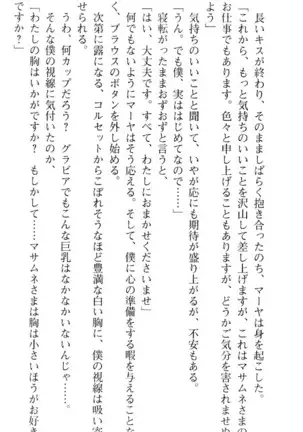 長いキスが終わり、そのまましばらく抱き合ったのち、マーヤは身を起こした。
「これから、もっと気持ちのいいことを沢山して差し上げますが、これはマサムネさまの
お仕事でもあります。色々と申し上げることもありますが、どうかご気分を害されません
よう」
気持ちのいいことと聞いて、いやが応にも期待が盛り上がるが、不安もある。
「うん。でも僕、実ははじめてなので……」
寝転がったままおずおずと言うと、
「はい、大丈夫です。すべて、わたしにおまかせくださいませ」
何でもないようにマーヤはそう応える。そして、僕に心の準備をする暇を与えることな
く、ブラウスのボタンを外し始める。
次第に露になる、コルセットからこぼれそうなほど豊満な白い胸に、僕の視線は吸い寄
せられる。
うわ、何カップだろう？　グラビアでもこんな巨乳はなかなかいないんじゃ……。
そんな僕の視線に気付いたのか、
「わたしの胸はいかがですか？　もしかして……マサムネさまは胸は小さいほうがお好き
ですか？」